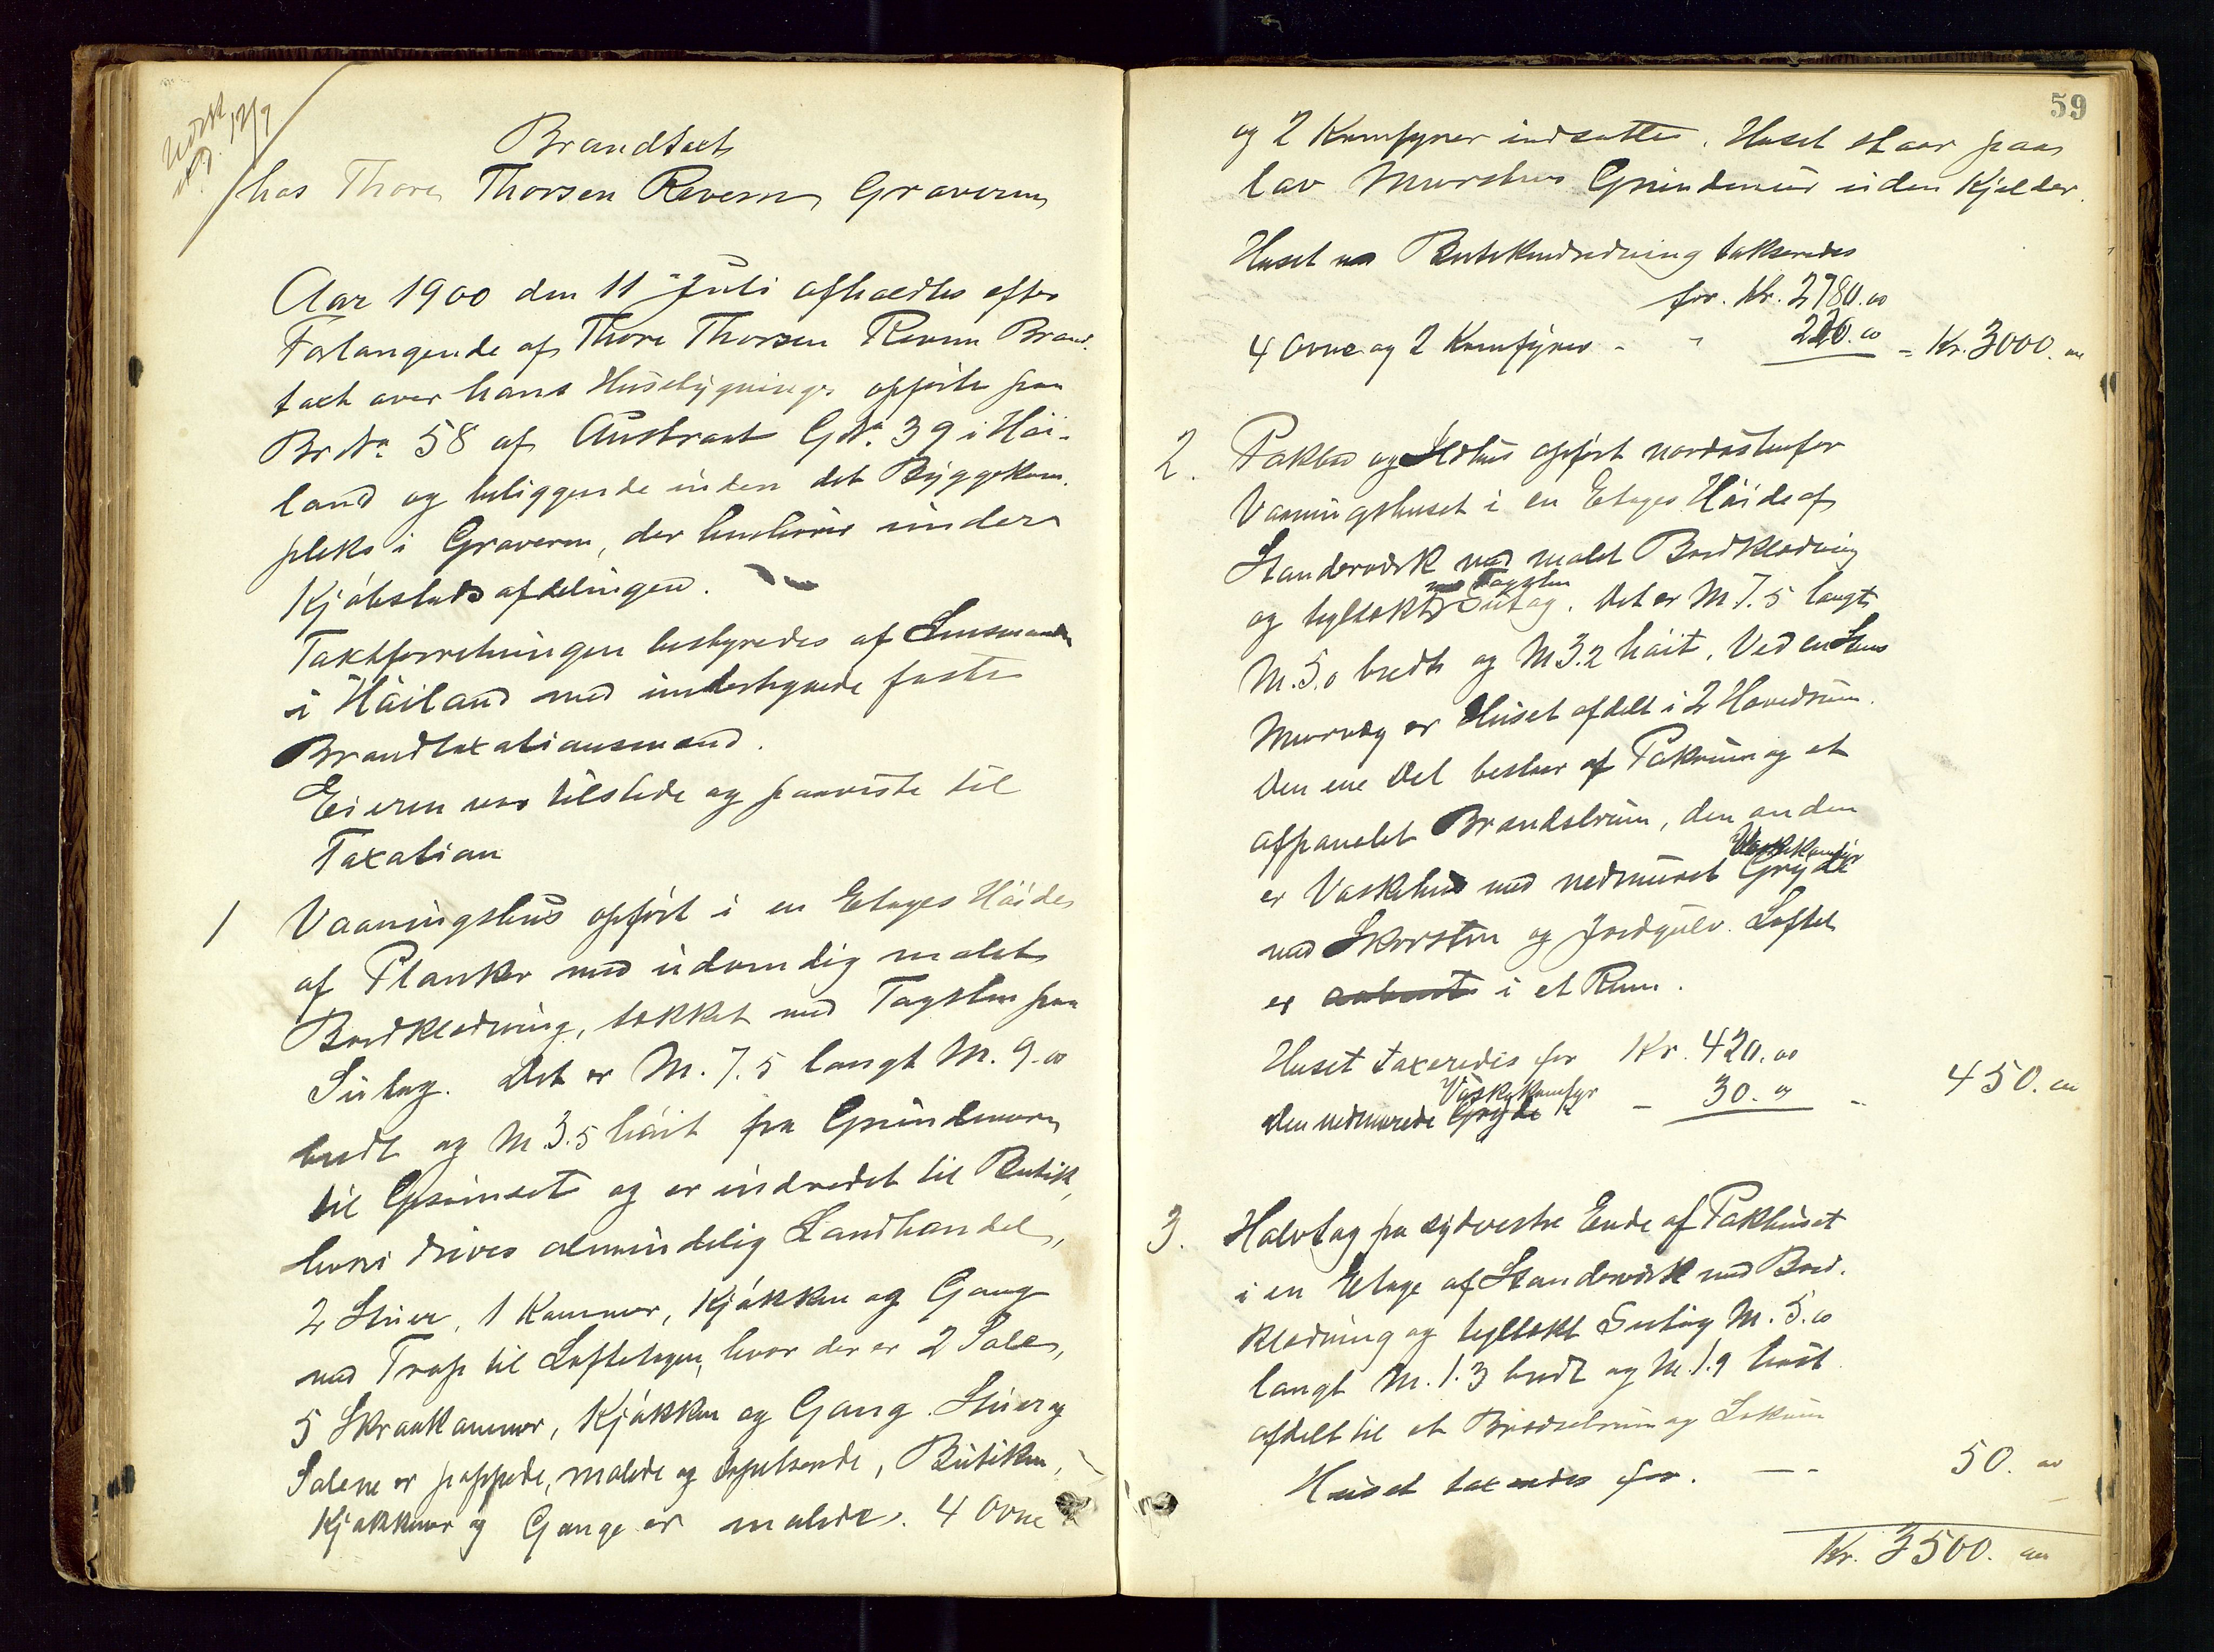 Udskr.
12/9
Brandtaxt
hos Thore Thorsen Reveren Graveren
Aar 1900 den 11 Juli afholdtes efter
Forlangende af Thore Thorsen Reveren Brand-
taxt over hans Husebygninger opførte paa
Br No 58 af Austraat G No 39 i Høi-
land og beliggende inden det Byggekom-
pleks i Graveren, der henhører under
Kjøbstadsafdelingen.
Taxtforretningen bestyredes af Lensmanden
i Høiland med undertegnede faste
Brandtaxationsmænd.
Eieren var tilstede og paaviste til
Taxation
1 Vaaningshus opført i en Etages Høide
af Planker med udvendig malet
Bordklædning, tækket med Tagsten paa
Sutag. Det er M. 7.5 langt M. 9.00
bredt og M 3.5 høit fra Grundmuren
til Gesimset og er indredet til Butik,
hvori drives almindelig Landhandel,
2 Stuer, 1 Kammer, Kjøkken og Gang
med Trap til Loftetagen, hvor der er 2 Sale,
5 Skraakammer, Kjøkken og Gang. Stuer og
Salene er pappede, malede og tapetserede, Butiken,
Kjøkkener og Gange er malede. 4 Ovne
59
og 2 Komfyrer indsatte. Huset staar paa
lav Murstens Grundmur uden Kjelder.
Huset m Butikindredning takseredes
for. Kr. 2780.00
4 Ovne og 2 Komfyrer - " 220.00 = Kr. 3000.00
2. Pakbod og Ildhus opført nordøstenfor
Vaaningshuset i en Etages Høide af
Standerværk med malet Bordklædning
med Tagsten
og tegltækt Sutag. Det er M 7.5 langt
M. 5.0 bredt og M 3.2 høit. Ved en Stens
Murvæg er Huset afdelt i 2 Hovedrum.
Den ene Del bestaar af Pakrum og et
afpanelet Brændselrum, den anden
Vaskekomfyr
er Vaskehus med nedmuret Gryde
med Skorsten og Jordgulv. Loftet
er i et Rum.
Huset taxeredes for Kr. 420.00
Vaskekomfyr
den nedmurede Gryde - 30.00 - 450.00
3. Halvtag paa sydvestre Ende af Pakhuset
i en Etage af Standerværk med Bord-
klædning og tegltækt Sutag M. 5.00
langt M. 1.3 bredt og M. 1.9 høit
afdelt til et Brændselrum og Lokum
Huset taxeredes for. — - 50.00
Kr. 3500.00